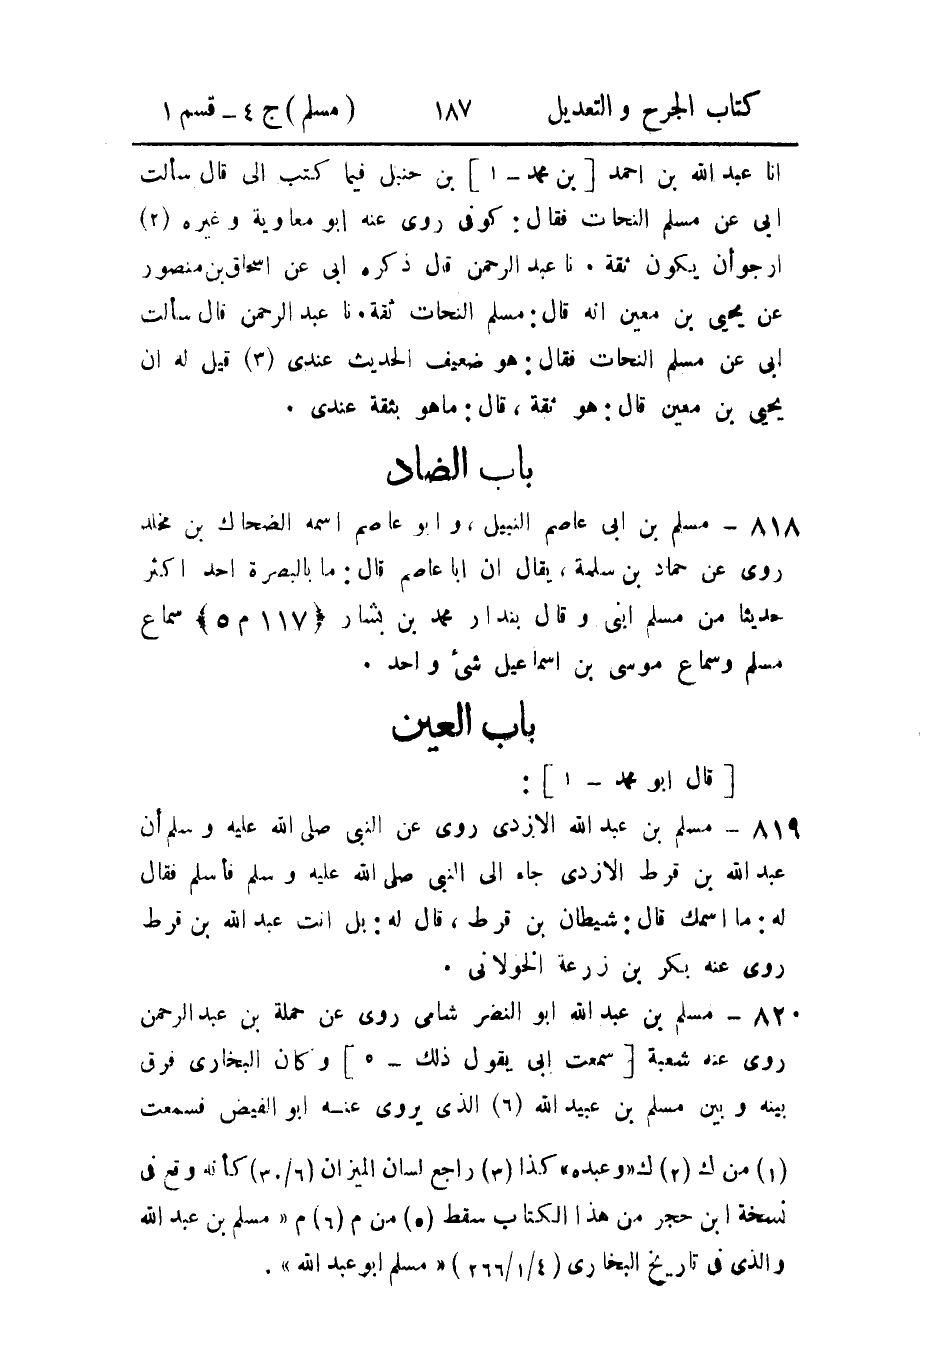 كتاب الجرح و التعديل ١٨٧ ( مسلم ) ج ٤ ـ قسم ١
انا عبد الله بن احمد [ بن محمد ـ ١ ] بن حنبل فيما كتب الى قال سألت
ابى عن مسلم النحات فقال : كوفى روى عنه ابو معاوية و غيره (٢)
ارجو أن يكون ثقة ٠ نا عبد الرحمن قال ذكره ابى عن اسحاق بن منصور
عن يحيى بن معين انه قال : مسلم النحات ثقة ٠ نا عبد الرحمن قال سألت
ابى عن مسلم النحات فقال : هو ضعيف الحديث عندى (٣) قيل له ان
يحيى بن معين قال : هو ثقة ، قال : ماهو بثقة عندى ٠
باب الضاد
٨١٨ ـ مسلم بن ابى عاصم النبيل ، و ابو عاصم اسمه الضحاك بن مخلد
روى عن حماد بن سلمة ، يقال ان ابا عاصم قال : ما بالبصرة احد اكثر
حديثا من مسلم ابنى و قال بندار محمد بن بشار ﴿ ١١٧ م ٥ ﴾ سماع
مسلم وسماع موسى بن اسماعيل شئ و احد ٠
باب العين
[ قال ابو محمد ـ ١ ] :
٨١٩ ـ مسلم بن عبد الله الازدى روى عن النبى صلى الله عليه و سلم أن
عبد الله بن قرط الازدى جاء الى النبى صلى الله عليه و سلم فأسلم فقال
له : ما اسمك قال : شيطان بن قرط ، قال له : بل انت عبد الله بن قرط
روى عنه بكر بن زرعة الخولانى ٠
٨٢٠ ـ مسلم بن عبد الله ابو النضر شامى روى عن حملة بن عبد الرحمن
روى عنه شعبة [ سمعت ابى يقول ذلك ـ ٥ ] و كان البخارى فرق
بينه و بين مسلم بن عبيد الله (٦) الذى يروى عنه ابو الفيض فسمعت
(١) من ك (٢) ك «و عبده» كذا (٣) راجع لسان الميزان (٦/ ٣٠) كأنه وقع فى
نسخة ابن حجر من هذا الكتاب سقط (٥) من م (٦) م « مسلم بن عبد الله
والذى فى تاريخ البخارى ( ٤/ ١/ ٢٦٦ ) « مسلم ابو عبد الله » .